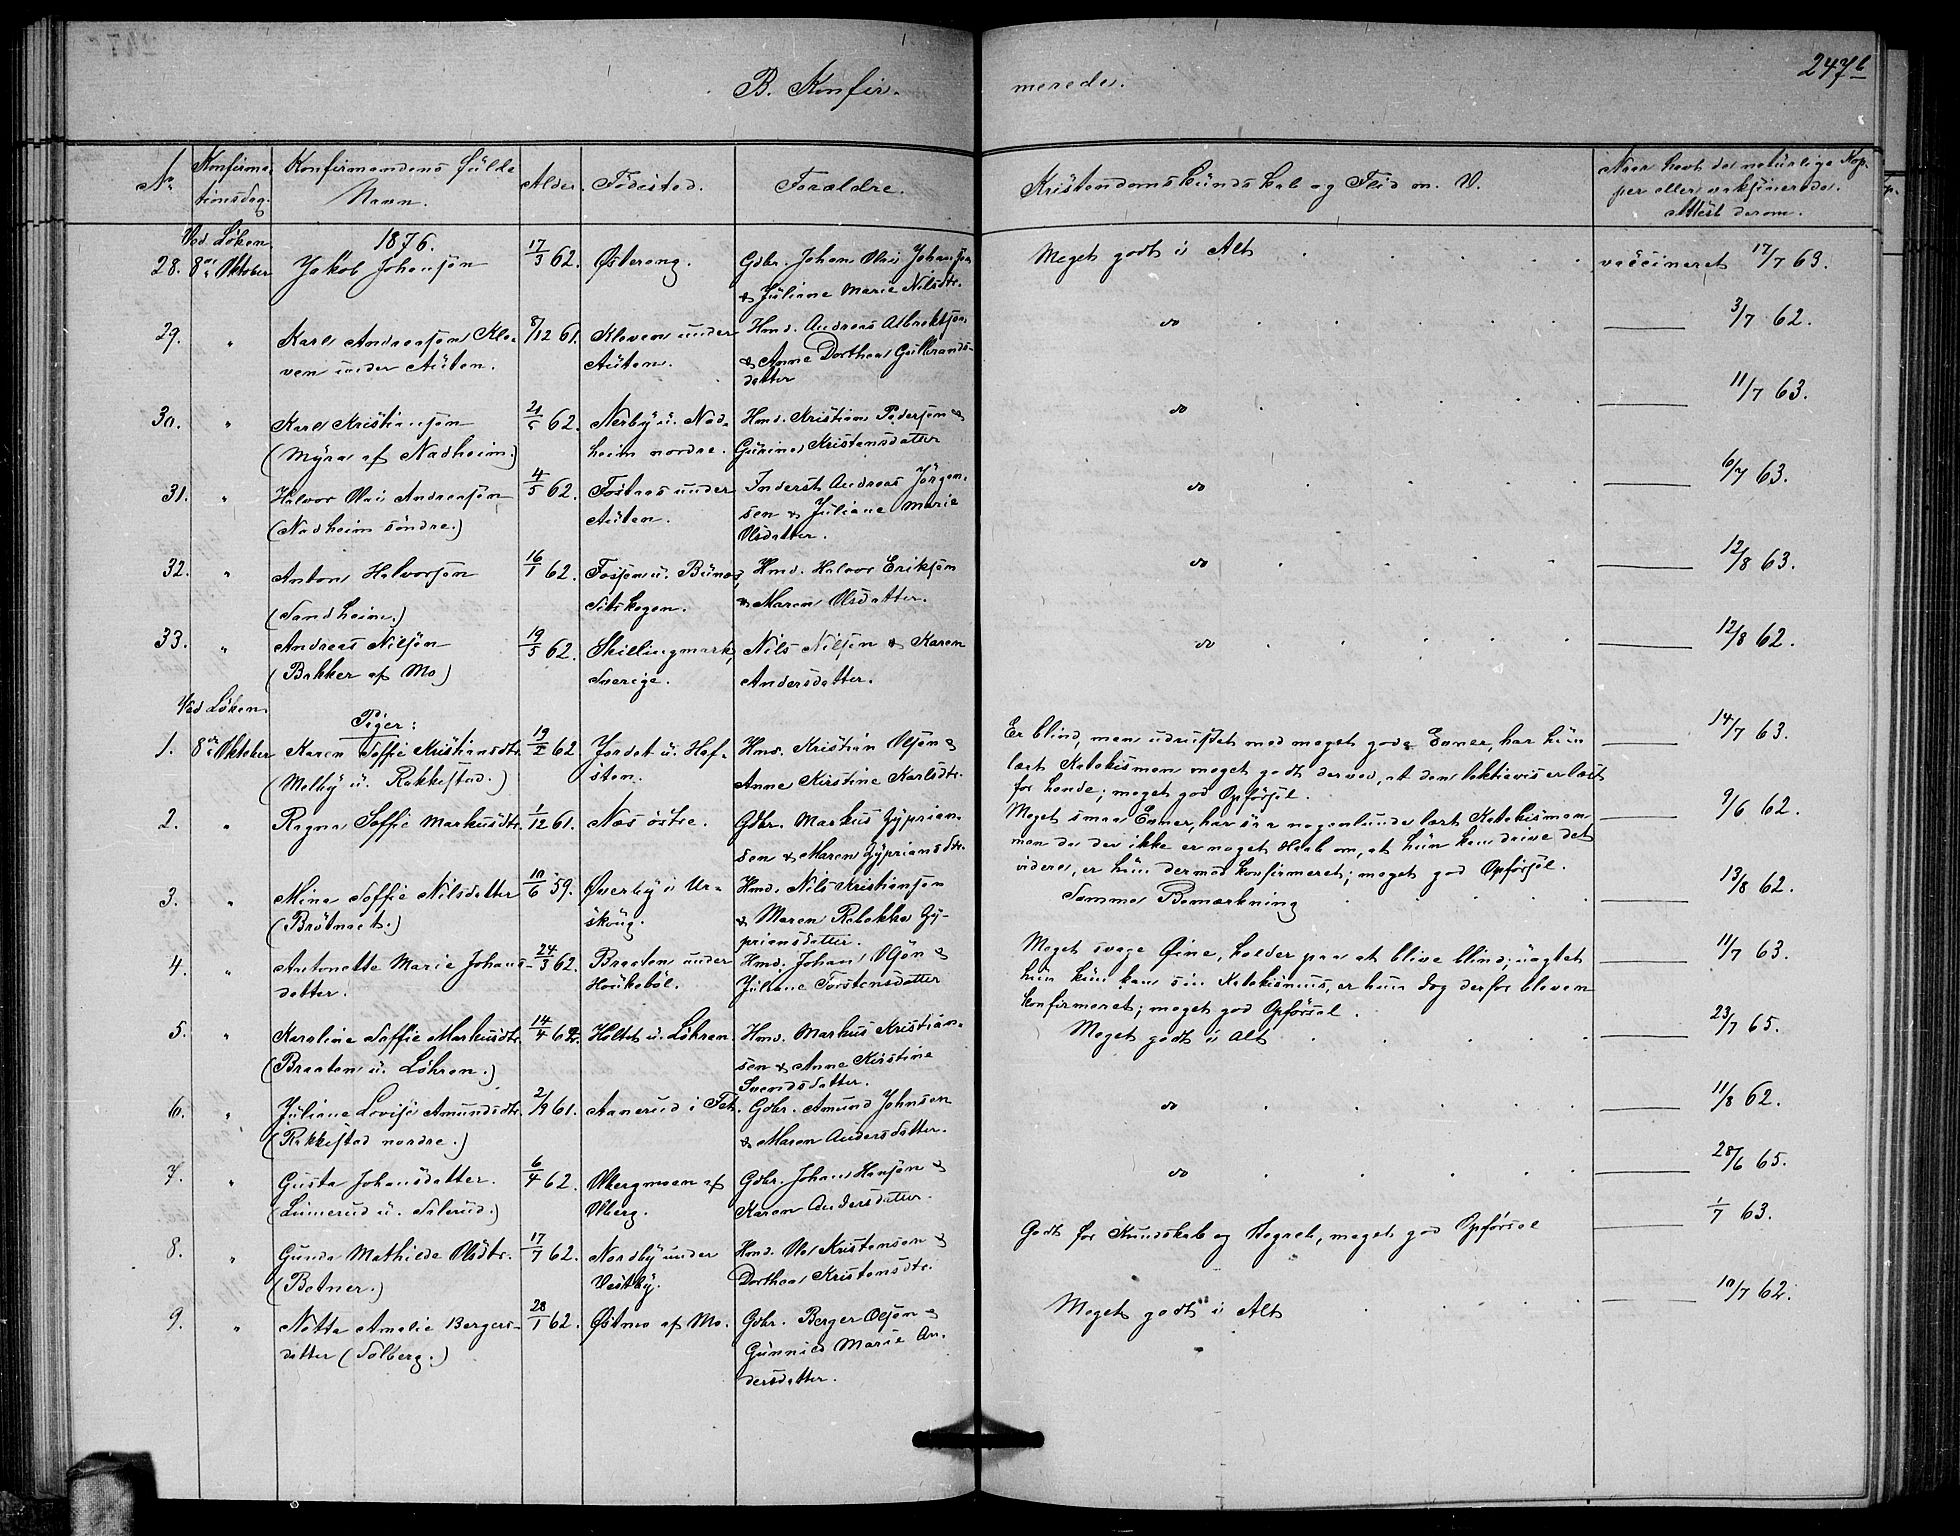 247b
B. Konfir-
merede.
No
Konfirma-
tionsdag.
Konfirmandens fulde
Navn.
Alder.
Fødested.
Forældre.
Kristendomskundskab og Flid m. V.
Naar havt de naturlige Kop-
per eller vaksinerede.
Attest derom.
Ved Løken 1876.
28. 8de Oktober Jakob Johansen 17/3 62. Østereng. Gdbr. Johan Olai Johansen
& Juliane Marie Nilsdtr.
Meget godt i Alt vaccineret 17/7 63.
29. " Karl Andreassen Klo- 8/12 61. Kloven under Hmd. Andreas Albrektsen
ven under Auten. Auten. & Anne Dorthea Gulbrands-
datter
do 3/7 62.
30. " Karl Kristiansen 21/5 62. Nerby u. Nad- Hmd. Kristian Pedersen &
(Myra af Nadheim.) heim nordre. Gurine Kristensdatter
do 11/7 63.
31. " Halvor Olai Andreassen 4/5 62. Fosnes under Inderst Andreas Jørgen-
(Nadheim søndre.) Auten. sen & Juliane Marie
Olsdatter.
do 6/7 63.
32. " Anton Halvorsen 16/1 62. Fossen u. Bunæs Hmd. Halvor Eriksen
(Sandheim.) Setskogen. & Maren Olsdatter.
do 12/8 63.
33. " Andreas Nilsen 19/5 62. Skillingmark, Nils Nilsen & Karen
(Bakker af Mo) Sverige. Andersdatter.
do 12/8 62.
Ved Løken Piger:
1. 8de Oktober Karen Soffie Kristiansdtr. 19/2 62. Jordet u. Haf- Hmd. Kristian Olsen &
(Melby u. Rakkestad.) sten. Anne Kirstine Karlsdtr.
Er blind, men udrustet med meget gode Evner, har hun 14/7 63.
lært Katekismen meget godt derved, at den lektievis er læst
for hende; meget god Opførsel.
2. " Ragna Soffie Markusdtr. 1/12 61. Nes østre. Gdbr. Markus Zyprian-
sen & Maren Zypriansdtr.
Meget smaa Evner, har saa nogenlunde lært Katekismen 9/6 62.
men da der ikke er noget Haab om, at hun kan drive det
videre, er hun dermed konfirmeret; meget god Opførsel.
3. " Mina Soffie Nilsdatter 10/6 59. Øverby i Ur- Hmd. Nils Kristiansen
(Brøtnæt.) skoug. & Maren Rebekka Zy-
priansdatter.
Samme Bemærkning 13/8 62.
4. " Antonette Marie Johans- 24/3 62. Braaten under Hmd. Johan Olsen &
datter. Houkebøl. Juliane Torstensdatter
Meget svage Øine, holder paa at blive blind; uagtet 11/7 63.
hun kun kan sin Katekismus, er hun dog derfor bleven
konfirmeret; meget god Opførsel.
5. " Karoline Soffie Markusdtr. 14/4 62. Holtet u. Løhren. Hmd. Markus Kristian-
(Braaten u. Løhren.) sen & Anne Kirstine
Svendsdatter.
Meget godt i Alt 23/7 65.
6. " Juliane Lovise Amundsdtr. 2/9 61. Aanerud i Fet. Gdbr. Amund Johnsen
(Rakkestad nordre.) & Maren Andersdatter.
do 11/8 62.
7. " Gusta Johansdatter. 6/4 62. Olbergmoen af Gdbr. Johan Hansen &
(Lunerud u. Solerud.) Olberg. Karen Andersdatter.
do 28/6 65.
8. " Gunda Mathilde Olsdtr. 17/7 62. Nordby under Hmd. Ole Kristensen &
(Botner.) Vestby. Dorthea Kristensdtr.
Godt for Kundskab og Begreb, meget god Opførsel 1/7 63.
9. " Netta Amalie Bergers- 28/1 62. Østmo af Mo. Gdbr. Berger Olsen &
datter (Solberg.) Gunnild Marie An-
dersdatter.
Meget godt i Alt 19/7 62.